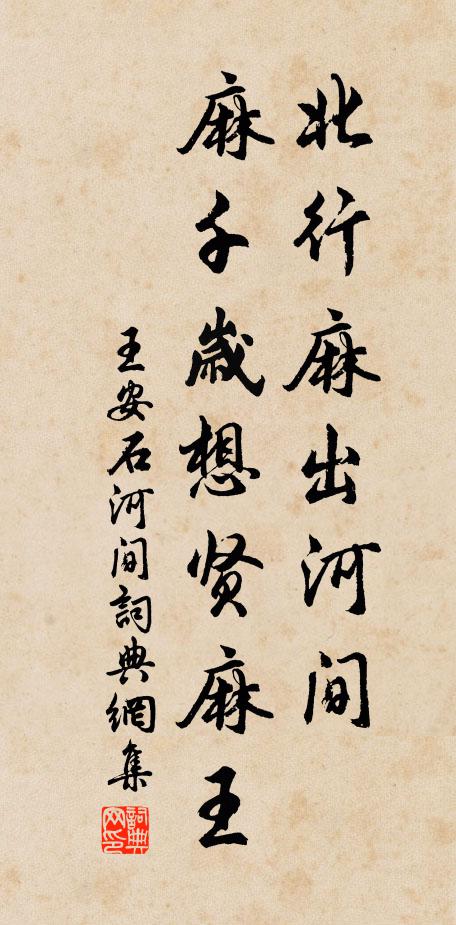 北行麻出河间
麻千歲想贤麻王
王安石河间詞典網集
詞典网印